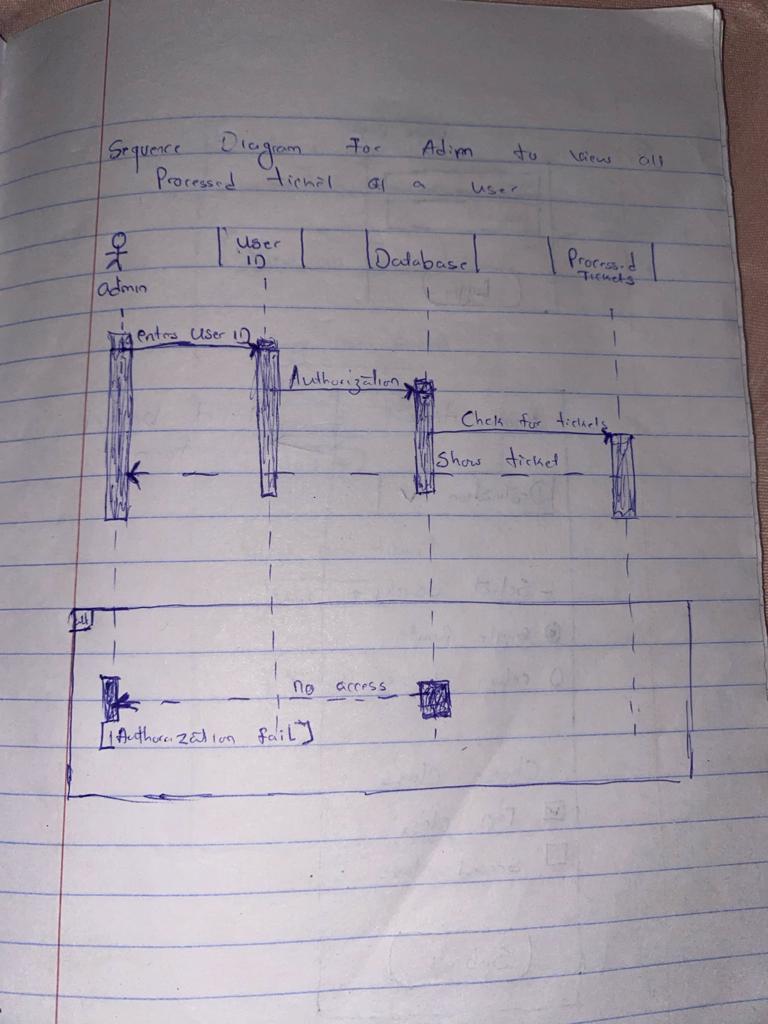 Sequence Diagram For Adim to view all
Processed ticket of a user
admin
User ID
Database
Processed Tickets
entes User ID
Authorization
Chck for tickets
Show ticket
alt
no access
[Authorization fail]